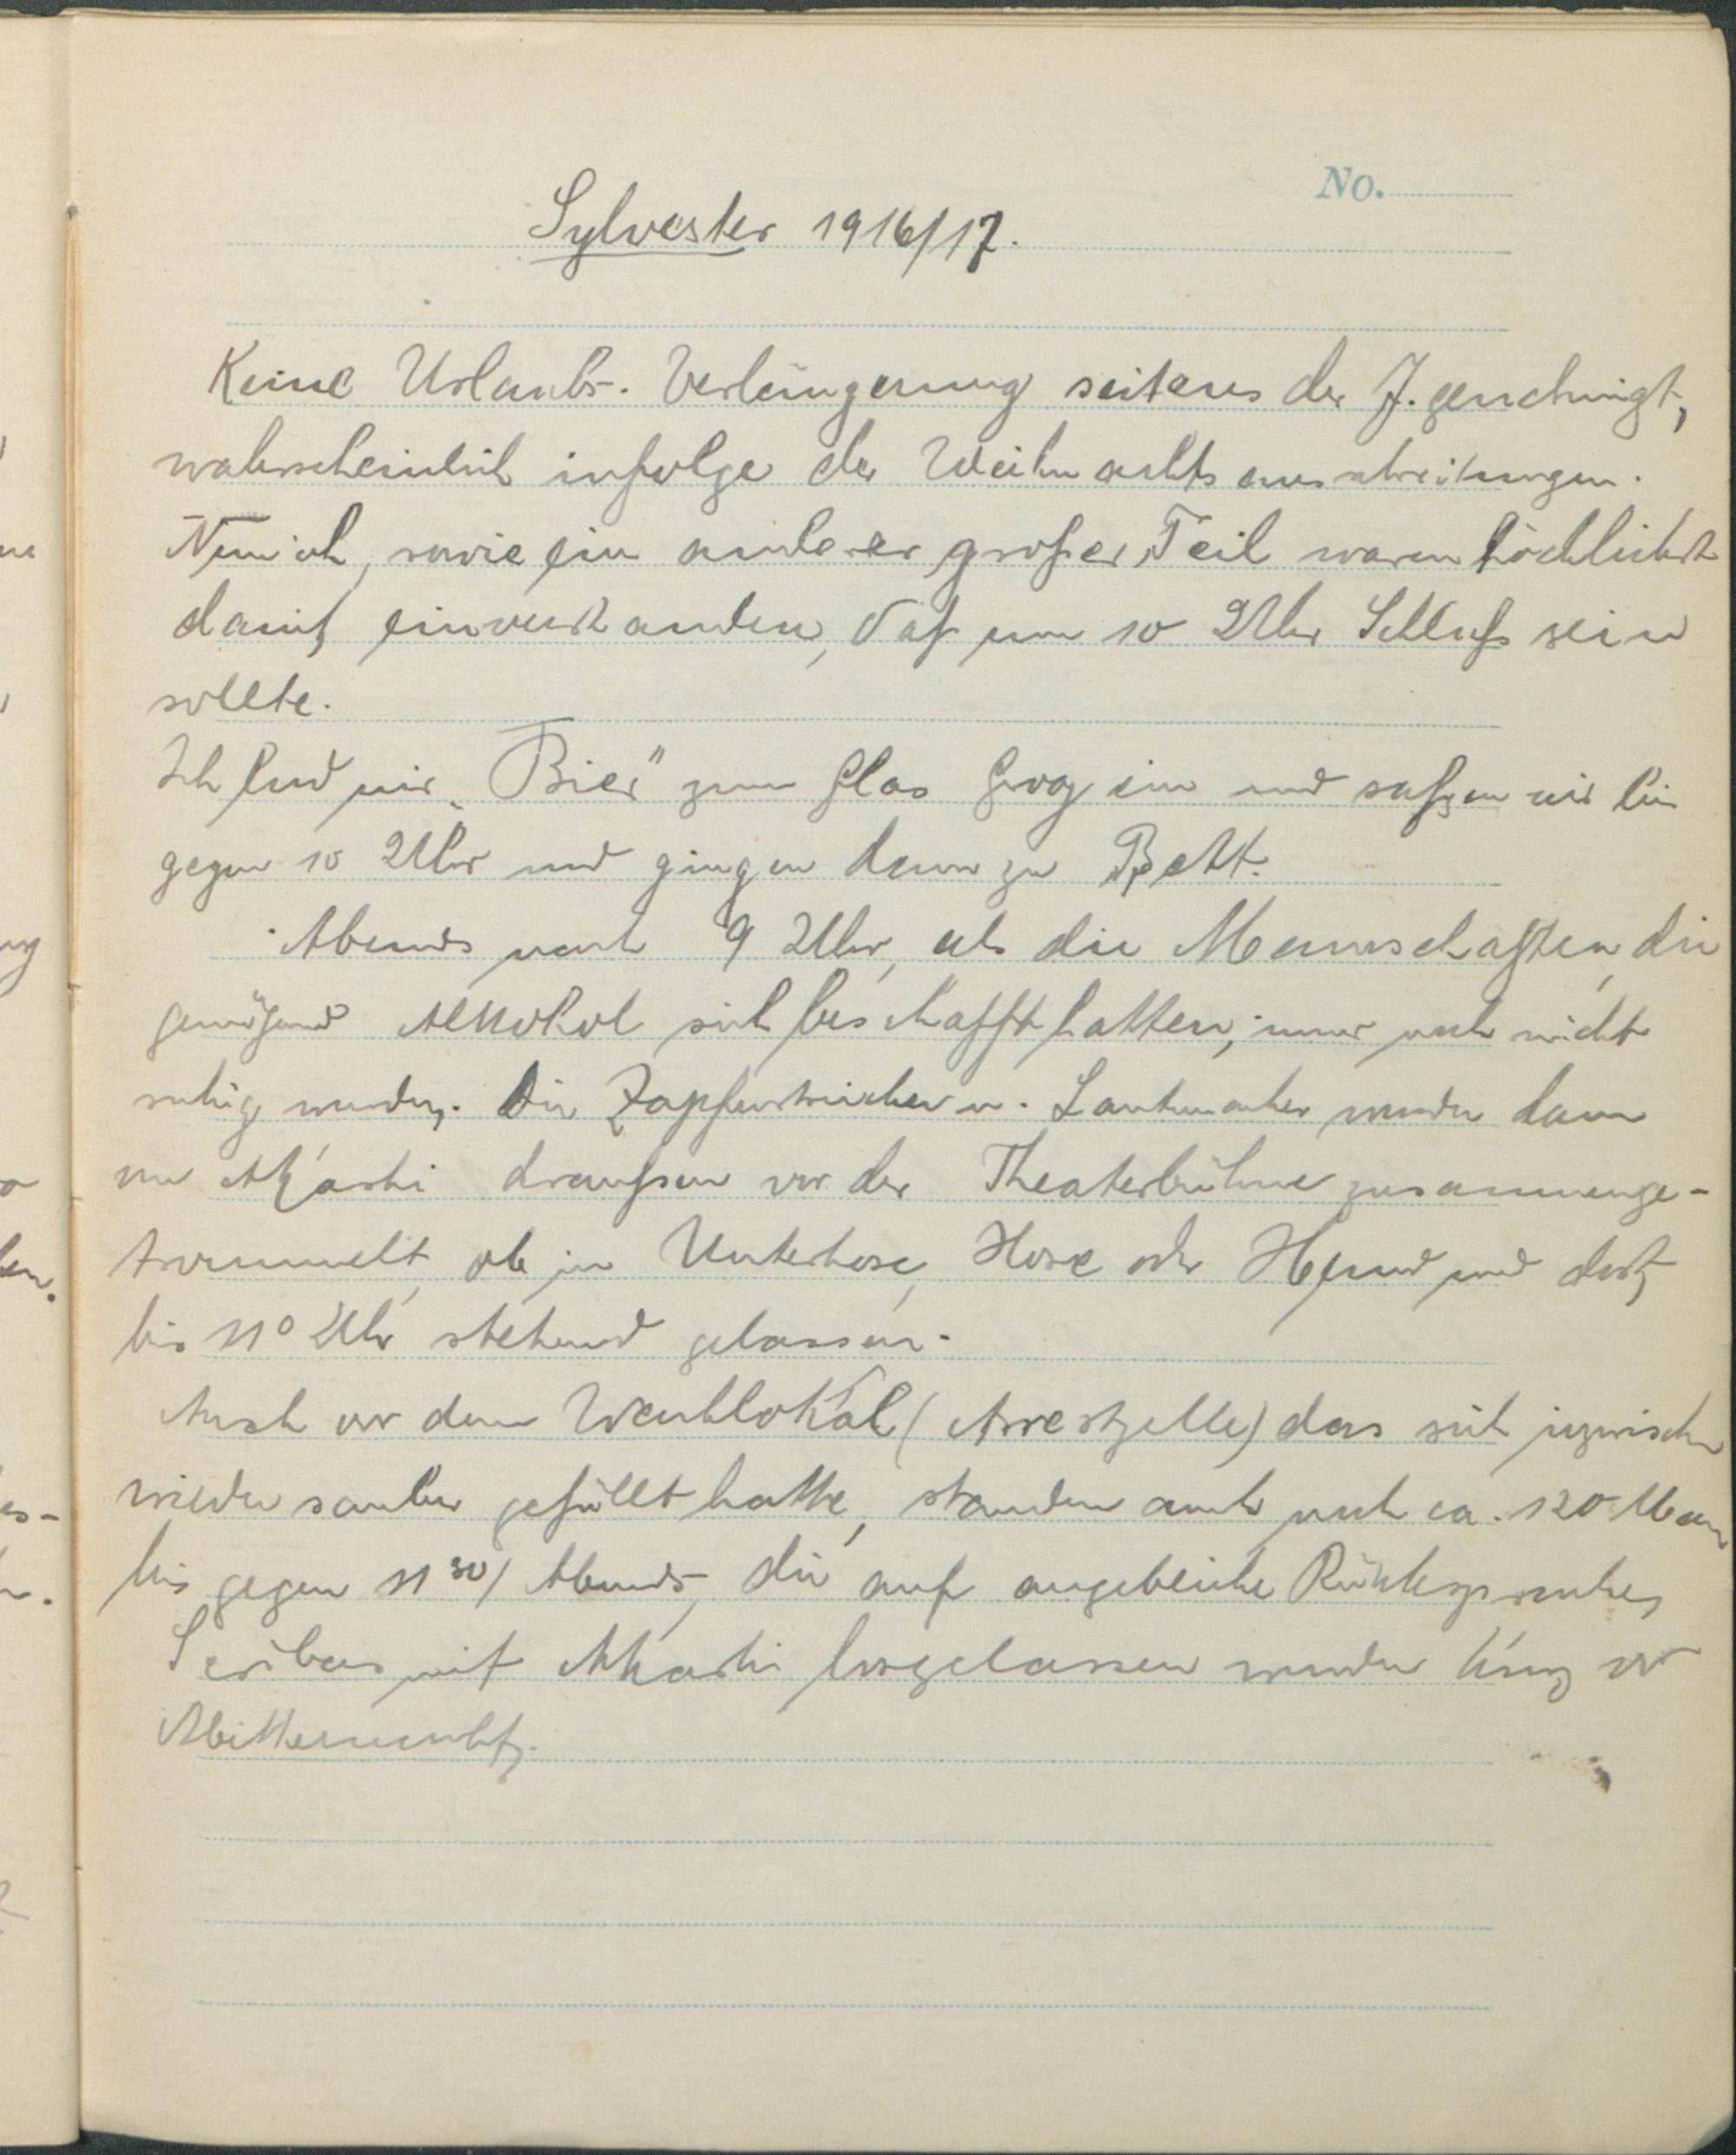 No.
Sylvester 1916/17.
Keine Urlaubs-Verlängerung seitens der J. genehmigt,
wahrscheinlich infolge der Weihnachtsausschreitungen.
Nun ich, sowie ein anderer großer Teil waren höchlichst
damit einverstanden, daß um 10 Uhr Schluß sein
sollte.
Ich lud mir „Bier" zum Glas Grog ein und saßen wir bis
gegen 10 Uhr und gingen dann zu Bett.
Abends nach 9 Uhr, als die Mannschaften, die
genügend Alkohol sich beschafft hatten, immer noch nicht
ruhig wurden. Die Zapfenstreicher u. Lautmacher wurden dann
von Akashi draußen vor der Theaterbühne zusammenge-
trommelt, ob in Unterhose, Hose oder Hemd und dort
bis 11⁰ Uhr stehend gelassen.
Auch vor dem Wachlokal (Arrestzelle) das sich inzwischen
wieder sauber gefüllt hatte, standen auch noch ca. 120 Mann
bis gegen 11³⁰/ Abends, die auf angebliche Rücksprache
mit Akashi losgelassen wurden kurz vor
Mitternacht.